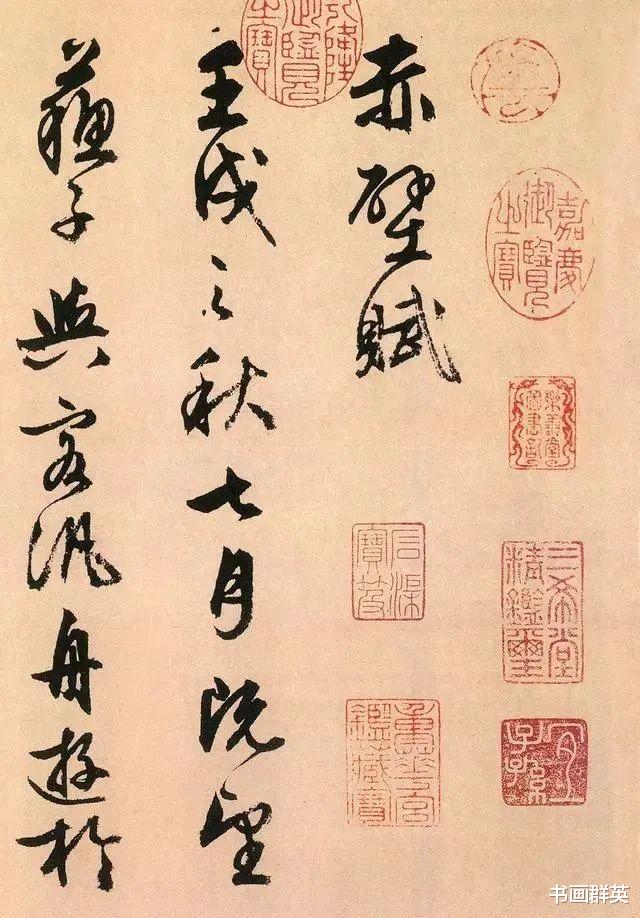 嘉慶御覽之寶
樂善堂圖書記
三希堂精鑑璽
宜子孫
赤壁賦
石渠寶笈
重華宮鑑藏寶
乾隆御覽之寶
壬戌之秋七月既望
蘇子與客汎舟遊於
书画群英